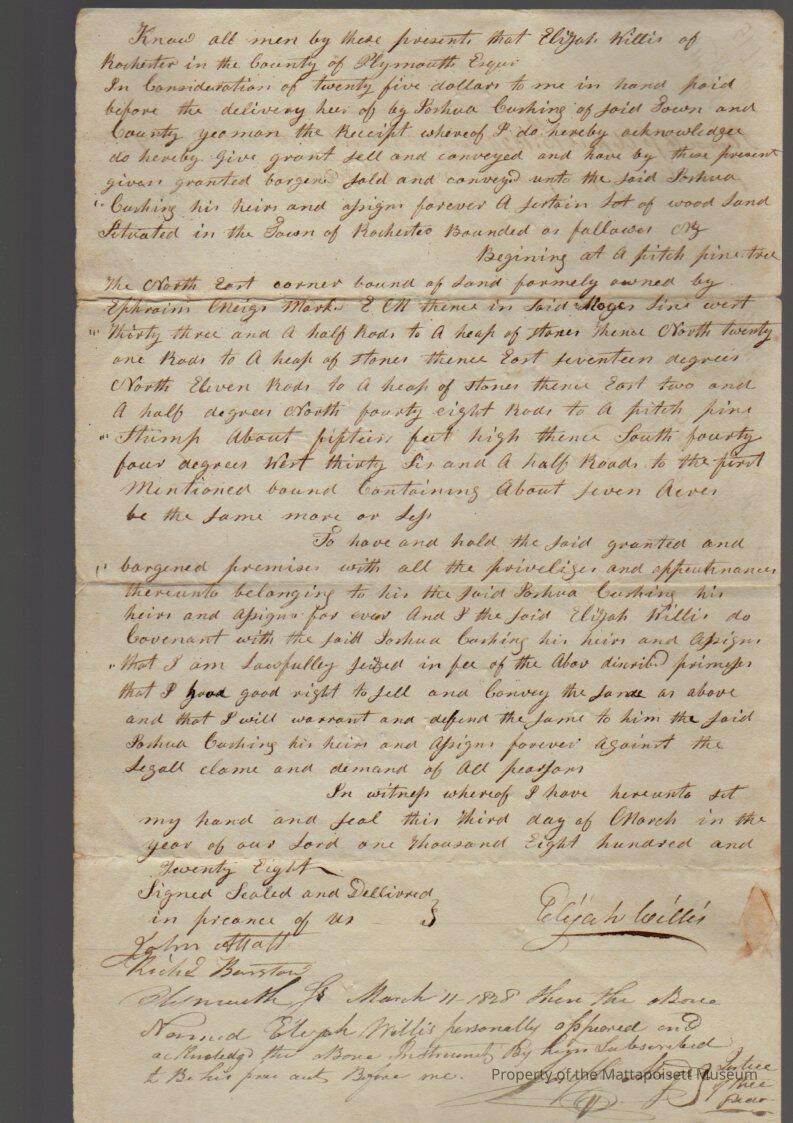 Know all men by these presents that Elijah Willis of
Rochester in the County of Plymouth Esqur
In Consideration of twenty five dollars to me in hand paid
before the delivery heir of by Joshua Cushing of said Town and
County yeoman the Receipt whereof I do hereby acknowledgee
do hereby give grant sell and conveyed and have by these present
given granted bargend sold and conveyd unto the said Joshua
Cushing his heirs and assigns forever A sertain Lot of wood Land
Situated in the Town of Rochester Bounded as followes
Begining at A pitch pine tree
the North East corner bound of Land formely owned by
Ephraim Meigs Markd E M thence in said Line west
thirty three and A half Rods to A heap of stones thence North twenty
one Rods to A heap of stones thence East seventeen degrees
North Eleven Rods to A heap of stones thence East two and
A half degrees North fourty eight Rods to A pitch pine
Stump About fifteen feet high thence South fourty
four degrees West thirty Six and A half Roads to the first
Mentioned bound Containing About seven Acres
be the same more or less
To have and hold the said granted and
bargened premises with all the priveliges and appeutenances
thereunto belonging to his the said Joshua Cushing his
heirs and assigns for ever And I the said Elijah Willis do
Covenant with the said Joshua Cushing his heirs and Assigns
that I am Lawfully seized in fee of the Abov discribd primeses
that I good right to sell and Convey the same as above
and that I will warrant and defend the same to him the said
Joshua Cushing his heirs and Assigns forever against the
Legall clame and demand of All pearsons
In witness whereof I have hereunto set
my hand and seal this third day of March in the
year of our Lord one thousand Eight hundred and
Twenty Eight
Signed Sealed and Dellivred
in preance of us
Elijah Willis
John
Richd Barstow
Plymouth Ss March 4 1828 then the above
Named Elijah Willis personally appeared and
acknowledgd the above Instrument By him Subscribed
to Be his free act Before me.
Justice
of the
Peace
Property of the Mattapoisett Museum